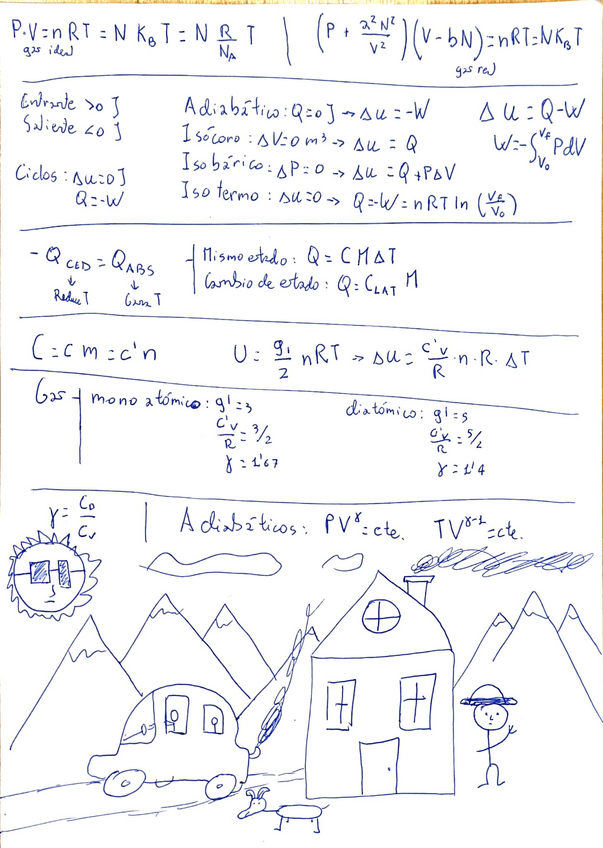 P·V=nRT = N K_B T = N R/N_A T | (P + a²N²/V²)(V-bN)=nRT=NK_BT
gas ideal
gas real
Entrante >0 J
Saliente <0 J
Ciclos: Δu=0J
Q=-W
Adiabático: Q=0 J → Δu=-W
Isócoro: ΔV=0 m³ → Δu = Q
Isobárico: ΔP=0 → Δu = Q+PΔV
Isotermo: Δu=0 → Q=-W=nRT ln (V_F/V_0)
Δu=Q-W
W=-∫_{V_0}^{V_F} PdV
-Q_CED = Q_ABS
↓ ↓
Reduce T Gana T
Mismo estado: Q= C M ΔT
Cambio de estado: Q= C_LAT M
C=c m=c'n U= gl/2 nRT → Δu= c'v/R ·n·R·ΔT
Gas
monoatómico: gl=3
c'v/R = 3/2
γ = 1'67
diatómico: gl=5
c'v/R = 5/2
γ = 1'4
γ= C_p/C_v | Adiabáticos: PV^γ=cte. TV^{γ-1}=cte.